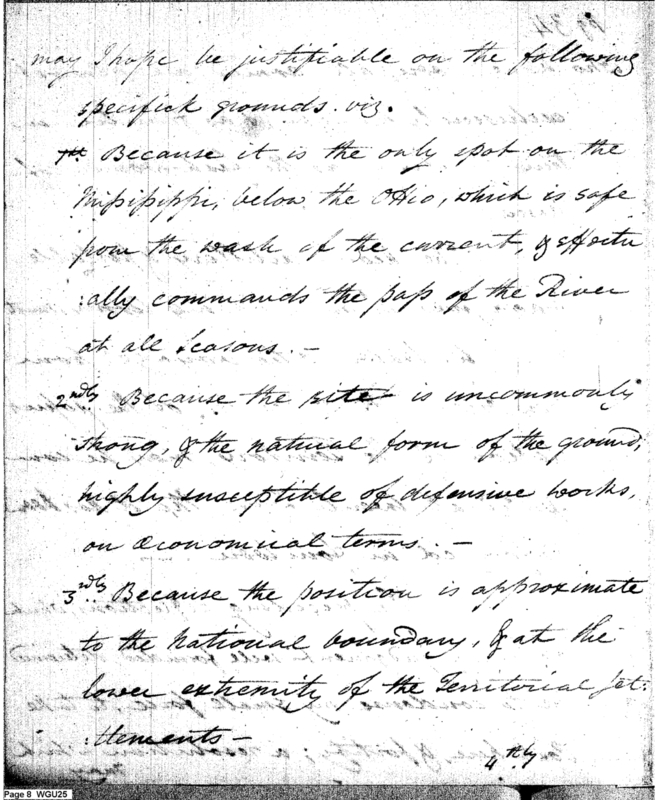 may I hope be justifiable on the following
specifick grounds. viz.
1st. Because it is the only spot on the
Missisippi, below the Ohio, which is safe
from the wash of the current, & effectu
:ally commands the pass of the River
at all Seasons. —
2ndly Because the site is uncommonly
strong, & the natural form of the ground,
highly susceptible of defensive works,
on œconomical terms. —
3rdly Because the position is approximate
to the National boundary, & at the
lower extremity of the Territorial Set:
:tlements —
4thly
Page 8 WGU25